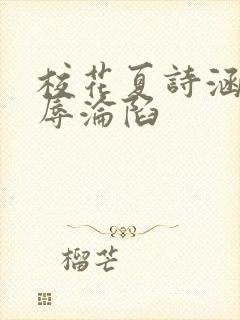 校花夏詩涵
辱淪陷
榴芒